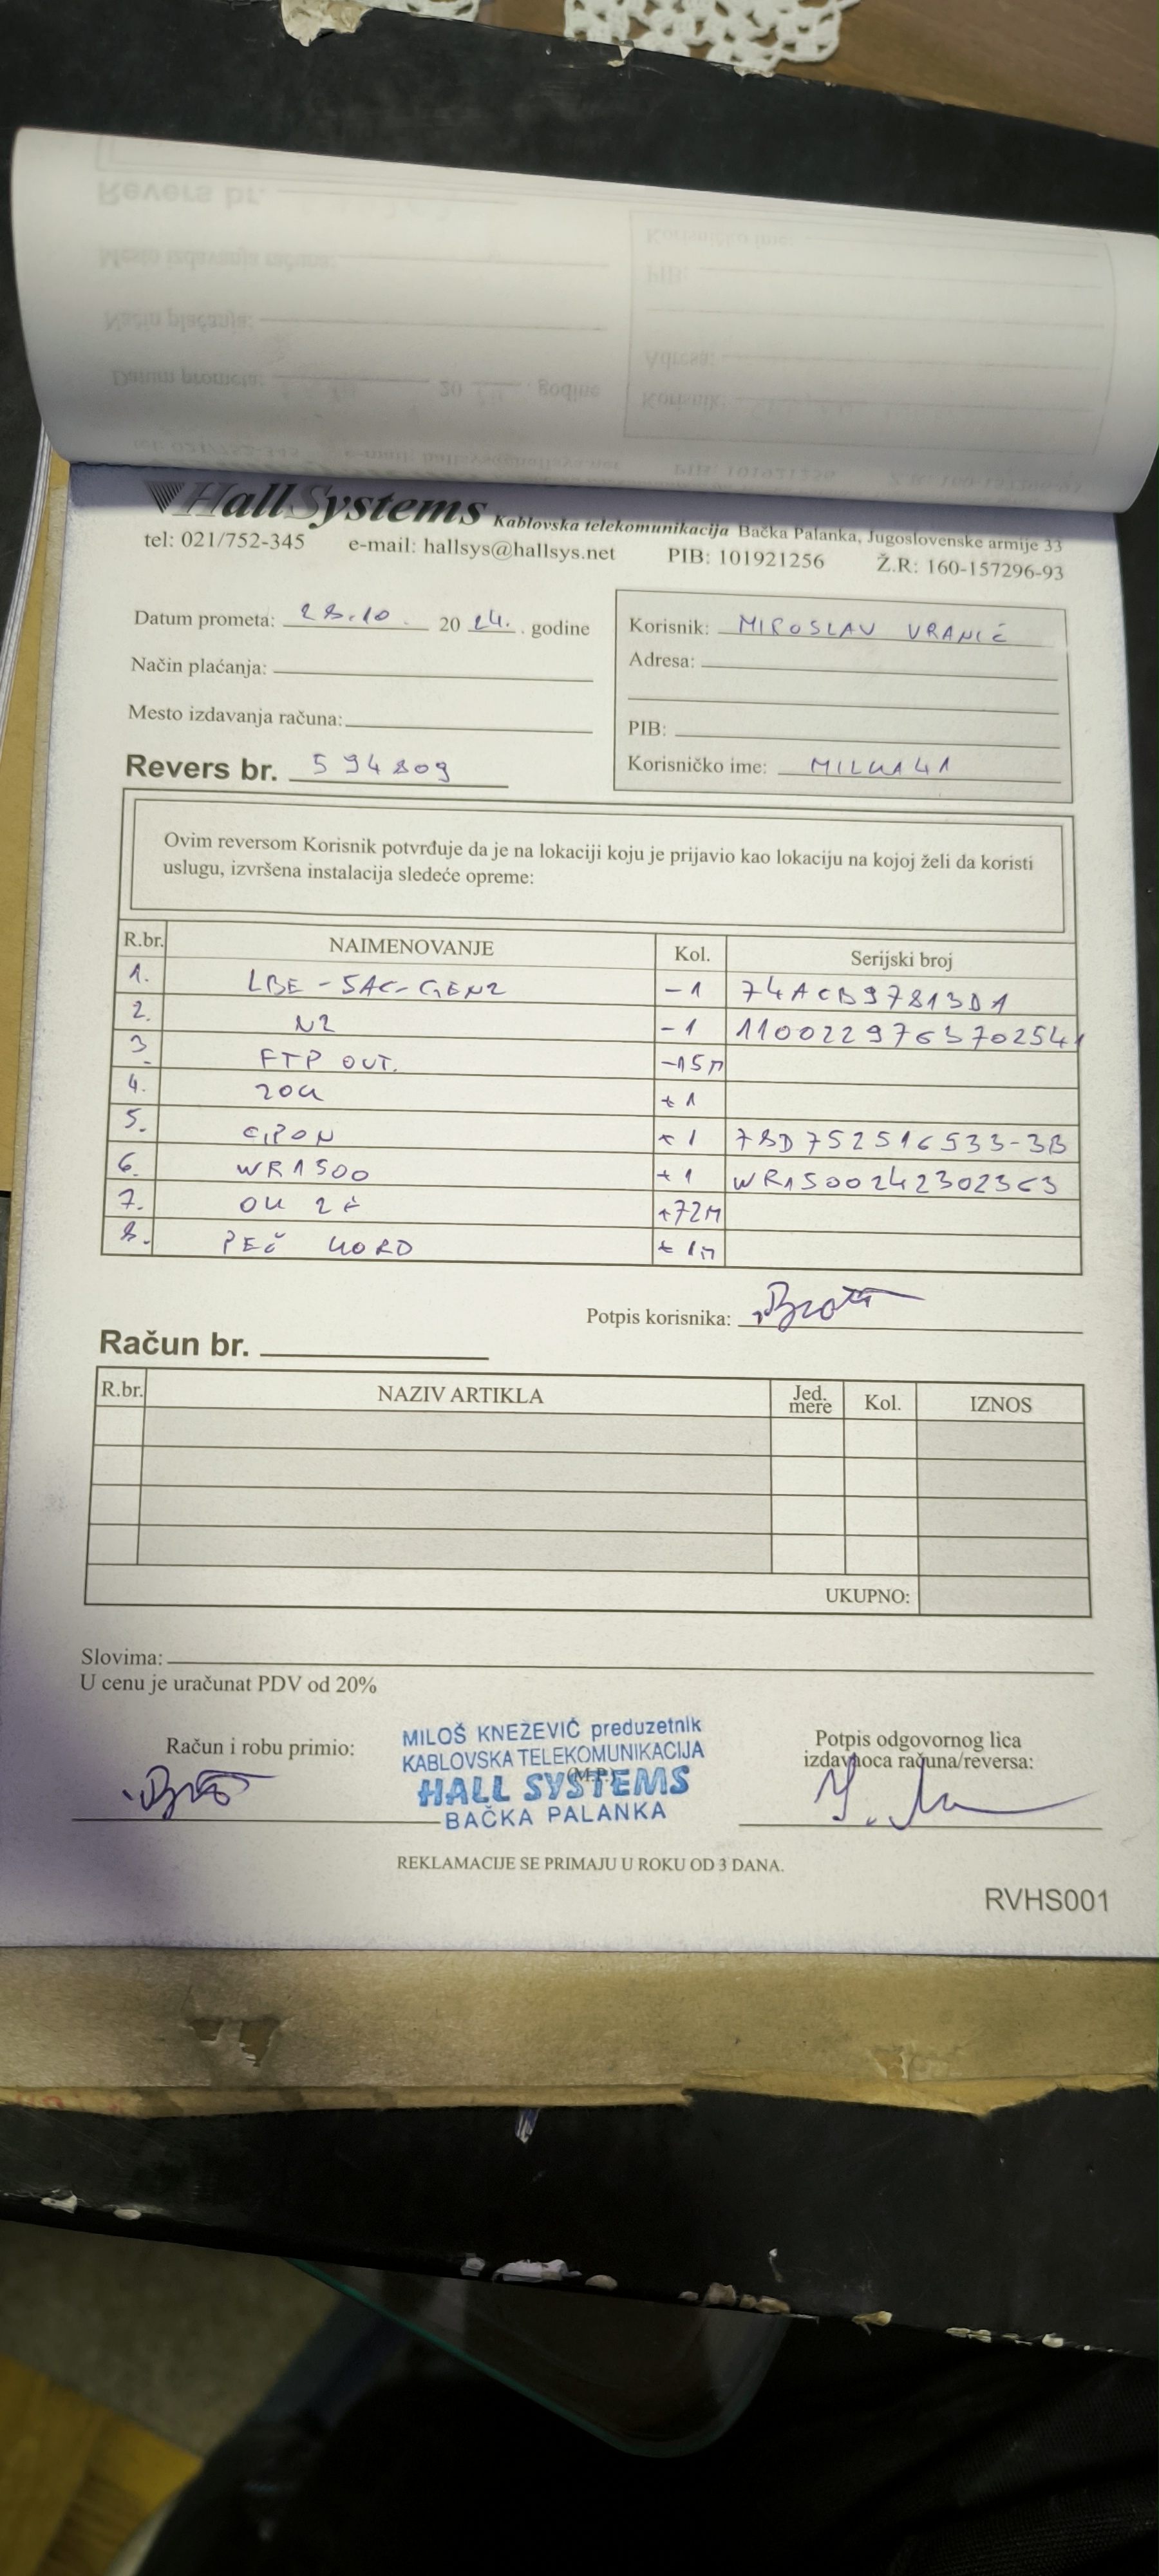 HallSystems Kablovska telekomunikacija Bačka Palanka, Jugoslovenske armije 33
tel: 021/752-345 e-mail: hallsys@hallsys.net PIB: 101921256 Ž.R: 160-157296-93
Datum prometa: 28.10. 2024. godine
Način plaćanja:
Mesto izdavanja računa:
Revers br. 594809
Korisnik: MIROSLAV VRANIĆ
Adresa:
PIB:
Korisničko ime: MILKA41
Ovim reversom Korisnik potvrđuje da je na lokaciji koju je prijavio kao lokaciju na kojoj želi da koristi
uslugu, izvršena instalacija sledeće opreme:
R.br. NAIMENOVANJE Kol. Serijski broj
1. LBE-5AC-GEN2 -1 74ACB97813DA
2. N2 -1
3. FTP OUT. -15M
4. +1
5. GPON +1
6. WR1500 +1 WR1500242302363
7. OK 2 +72M
8. PEČ KORD +1M
Potpis korisnika:
Račun br.
R.br. NAZIV ARTIKLA Jed. mere Kol. IZNOS
UKUPNO:
Slovima:
U cenu je uračunat PDV od 20%
Račun i robu primio:
MILOŠ KNEŽEVIĆ preduzetnik
KABLOVSKA TELEKOMUNIKACIJA
(M.P.)
HALL SYSTEMS
BAČKA PALANKA
Potpis odgovornog lica
izdavaoca računa/reversa:
REKLAMACIJE SE PRIMAJU U ROKU OD 3 DANA.
RVHS001